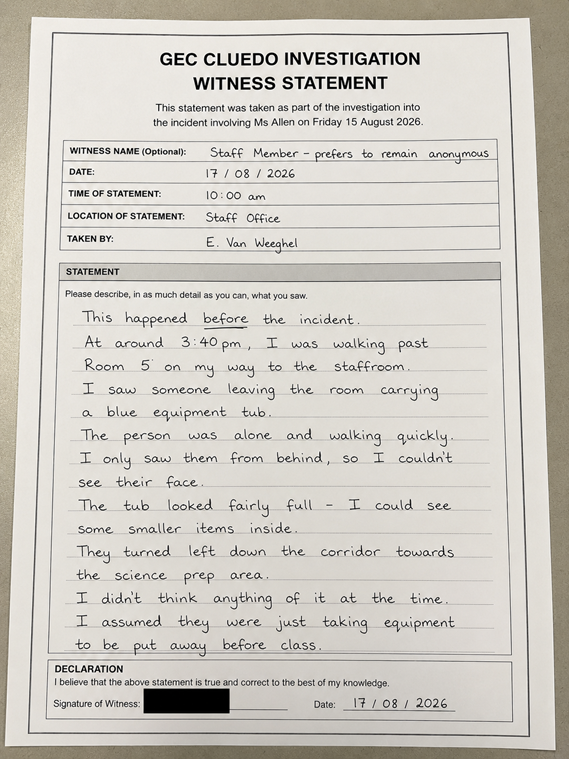 GEC CLUEDO INVESTIGATION
WITNESS STATEMENT
This statement was taken as part of the investigation into
the incident involving Ms Allen on Friday 15 August 2026.
WITNESS NAME (Optional): Staff Member – prefers to remain anonymous
DATE: 17 / 08 / 2026
TIME OF STATEMENT: 10:00 am
LOCATION OF STATEMENT: Staff Office
TAKEN BY: E. Van Weeghel
STATEMENT
Please describe, in as much detail as you can, what you saw.
This happened before the incident.
At around 3:40 pm, I was walking past
Room 5 on my way to the staffroom.
I saw someone leaving the room carrying
a blue equipment tub.
The person was alone and walking quickly.
I only saw them from behind, so I couldn't
see their face.
The tub looked fairly full – I could see
some smaller items inside.
They turned left down the corridor towards
the science prep area.
I didn't think anything of it at the time.
I assumed they were just taking equipment
to be put away before class.
DECLARATION
I believe that the above statement is true and correct to the best of my knowledge.
Signature of Witness: Date: 17 / 08 / 2026